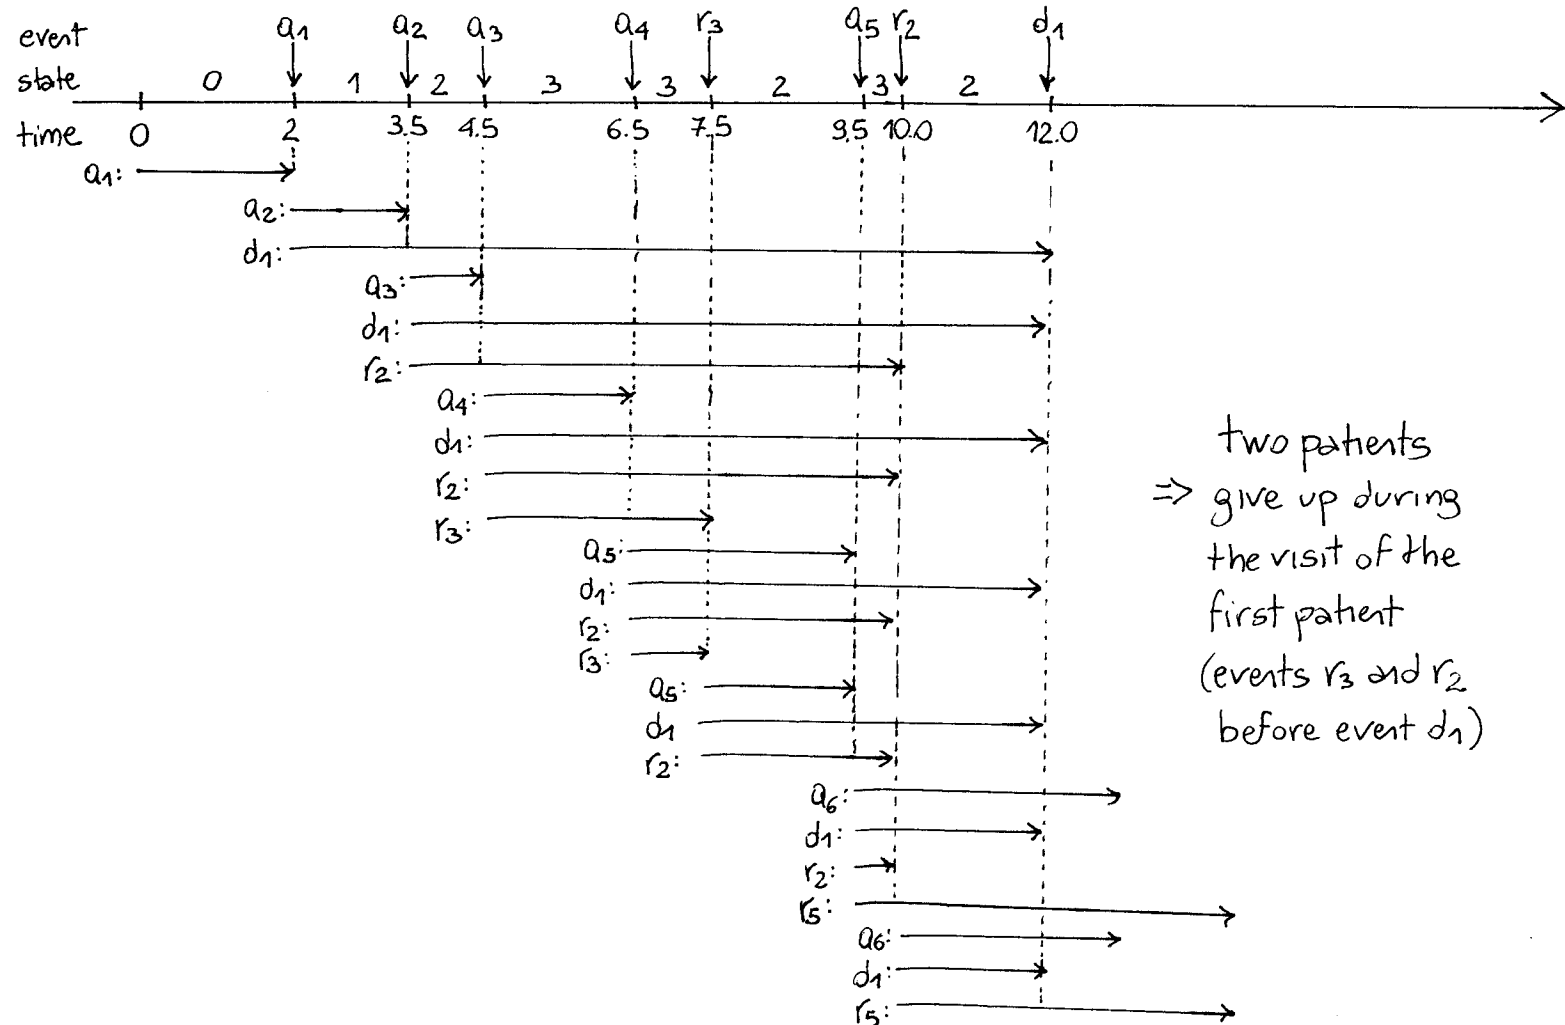 event a1 a2 a3 a4 r3 a5 r2 d1
state 0 1 2 3 3 2 3 2
time 0 2 3.5 4.5 6.5 7.5 9.5 10.0 12.0
a1:
a2:
d1:
a3:
d1:
r2:
a4:
d1:
r2:
r3:
a5:
d1:
r2:
r3:
a5:
d1
r2:
a6:
d1:
r2:
r5:
a6:
d1:
r5:
two patients
⇒ give up during
the visit of the
first patient
(events r3 and r2
before event d1)